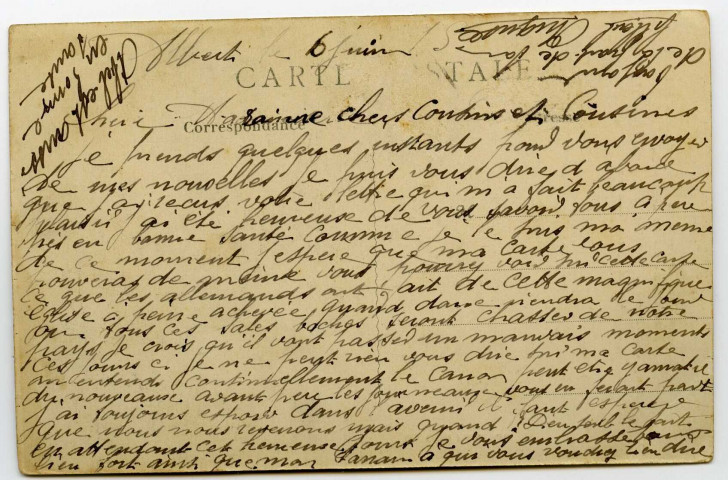 Albert le 6 juin 15
CARTE POSTALE
Correspondance
Chère Marraine chers Cousins et Cousines
Je prends quelques instants pour vous envoyer
de mes nouvelles je puis vous dire d abord
que j ai reçus votre lettre qui m a fait beaucoup
plaisir j ai été heureuse de vous savoir tous à peu
près en bonne santé comme je le suis moi même
de ce moment j espère que ma carte vous
trouveras de même vous pourrez voir sur cette carte
ce que les allemands ont fait de cette magnifique
église à peine achevée quand donc viendra le jour
ou tous ces sales boches seront chasser de notre
pays je crois qu il vont passer un mauvais moments
ces jours ci je ne peut rien vous dire sur ma carte
on entends continuellement le canon peut etre y auras t il
du nouveaux avant peu vous en ferait part
j ai toujours espoir dans l avenir il faut espérer
que nous nous reverrons mais quand Dieu seul le sait
en attendant cet heureuse jours je vous embrasse tous
bien fort ainsi que mon à qui vous voudrez bien dire
bonjour
de la part de sa